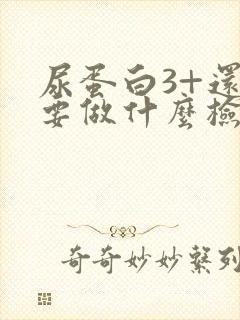 尿蛋白3+還
要做什麼檢
奇奇妙妙繫列